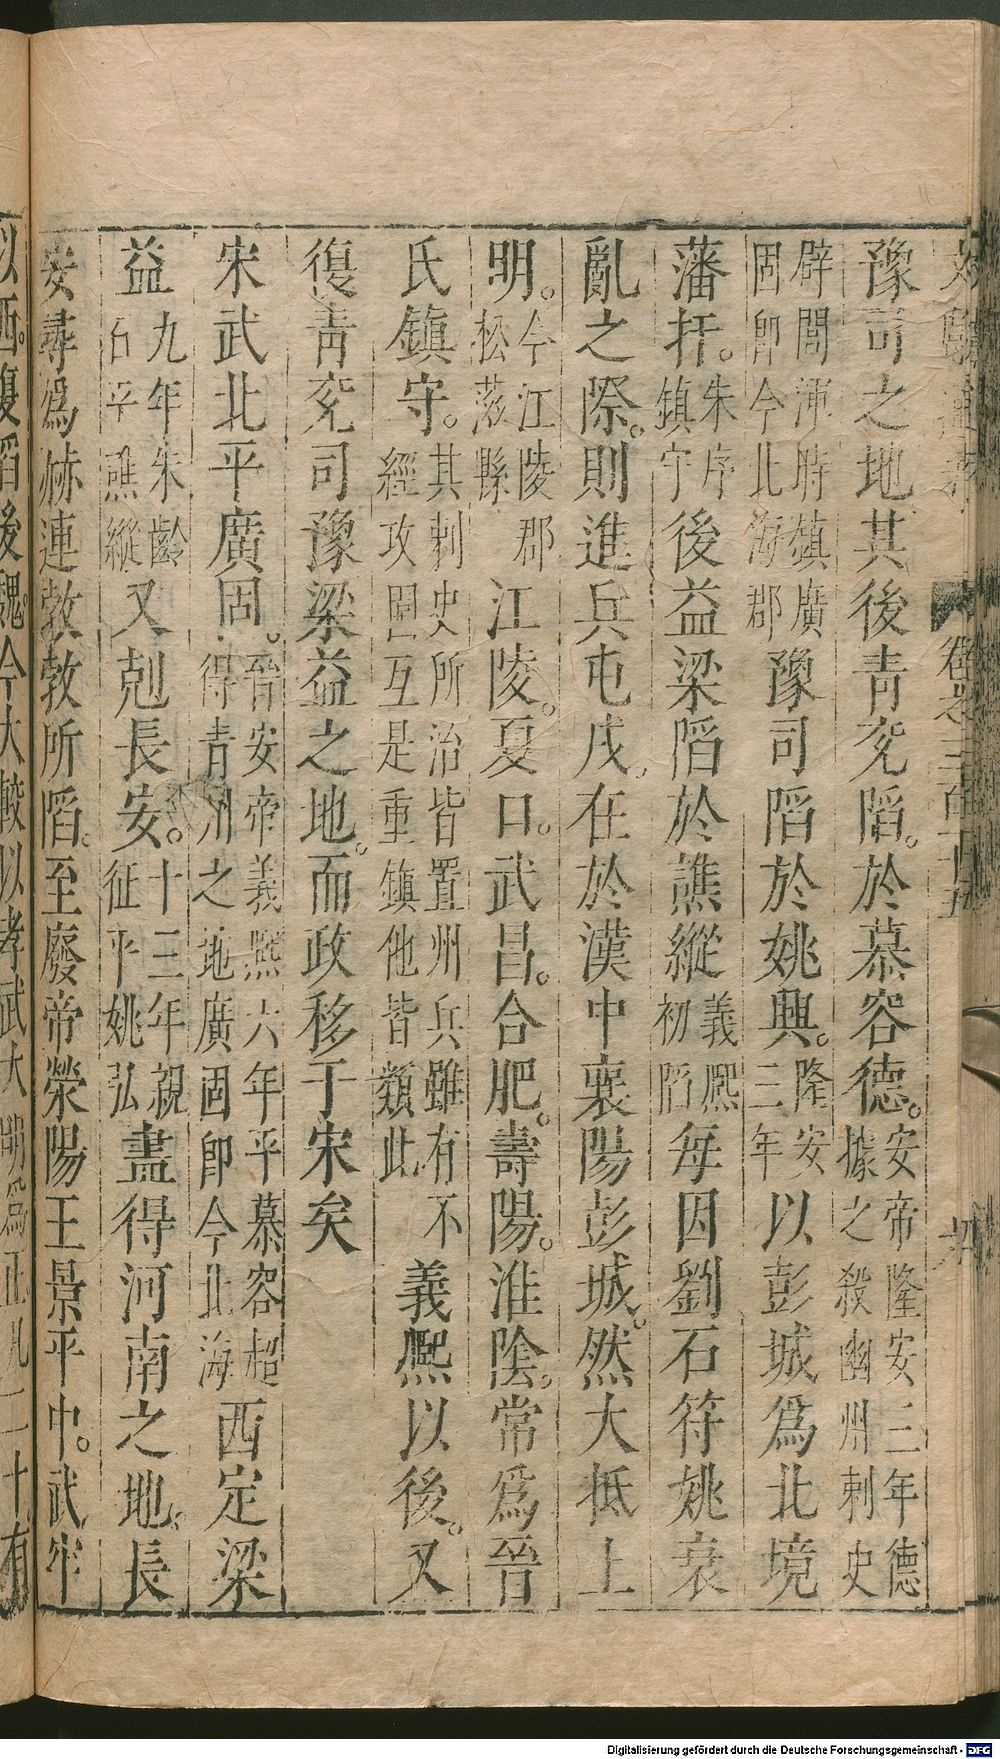 卷之三百十五
豫司之地其後青兖䧟。於慕容德。安帝隆安三年德據之殺幽州刺史
辟閭渾時鎮廣固即今北海郡豫司䧟於姚興。隆安三年以彭城爲北境
藩扞。朱序鎮守後益梁䧟於譙縱義熙初䧟每因劉石符姚衰
亂之際。則進兵屯戍。在於漢中襄陽彭城。然大抵上
明。今江陵郡松滋縣江陵。夏口。武昌。合肥。壽陽。淮陰。常爲晉
氏鎮守。其刺史所治皆置州兵雖有不經攻圍互是重鎮他皆類此義熙以後。又
復青兖司豫梁益之地。而政移于宋矣
宋武北平廣固。晉安帝義熙六年平慕容超得青州之地廣固即今北海西定梁
益九年朱齡石平譙縱又剋長安。十三年親征平姚弘盡得河南之地。長
安尋爲赫連勃勃所䧟。至廢帝滎陽王景平中。武牢
以西。復䧟後魏。今大較以孝武大明爲正凡二十有
Digitalisierung gefördert durch die Deutsche Forschungsgemeinschaft - DFG